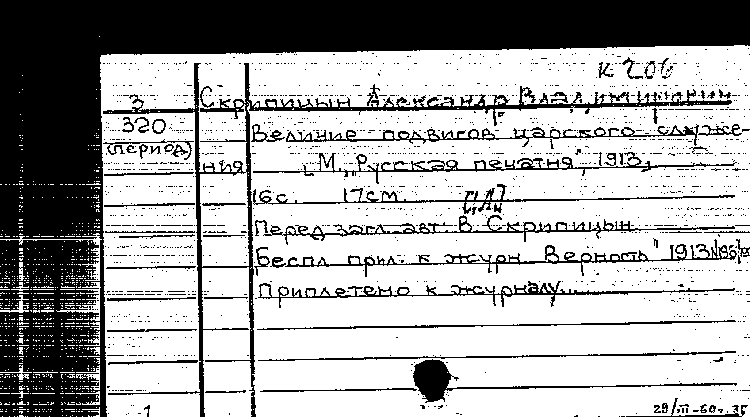 К 206
3 Скрипицын, Александр Владимирович
320 Величие подвигов царского служе-
(период)
ния М., „Русская печатня", 1913,
16с. 17см.
Перед загл. авт: В. Скрипицын
Беспл. прил. к журн. „Верность" 1913
Приплетено к журналу...
1
29/III-60г.